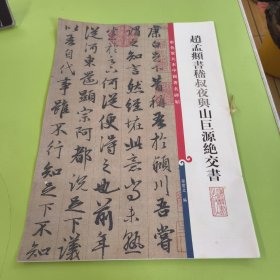 趙孟頫書嵇叔夜與山巨源絶交書
彩色放大本中國著名碑帖
孫寶文 編
康白足下昔稱吾於潁川吾嘗
謂之知言然經怪此意尚未熟
悉於足下何從便得之也前年
從河東還顯宗阿都説足下議
以吾自代事雖不行知足下不知